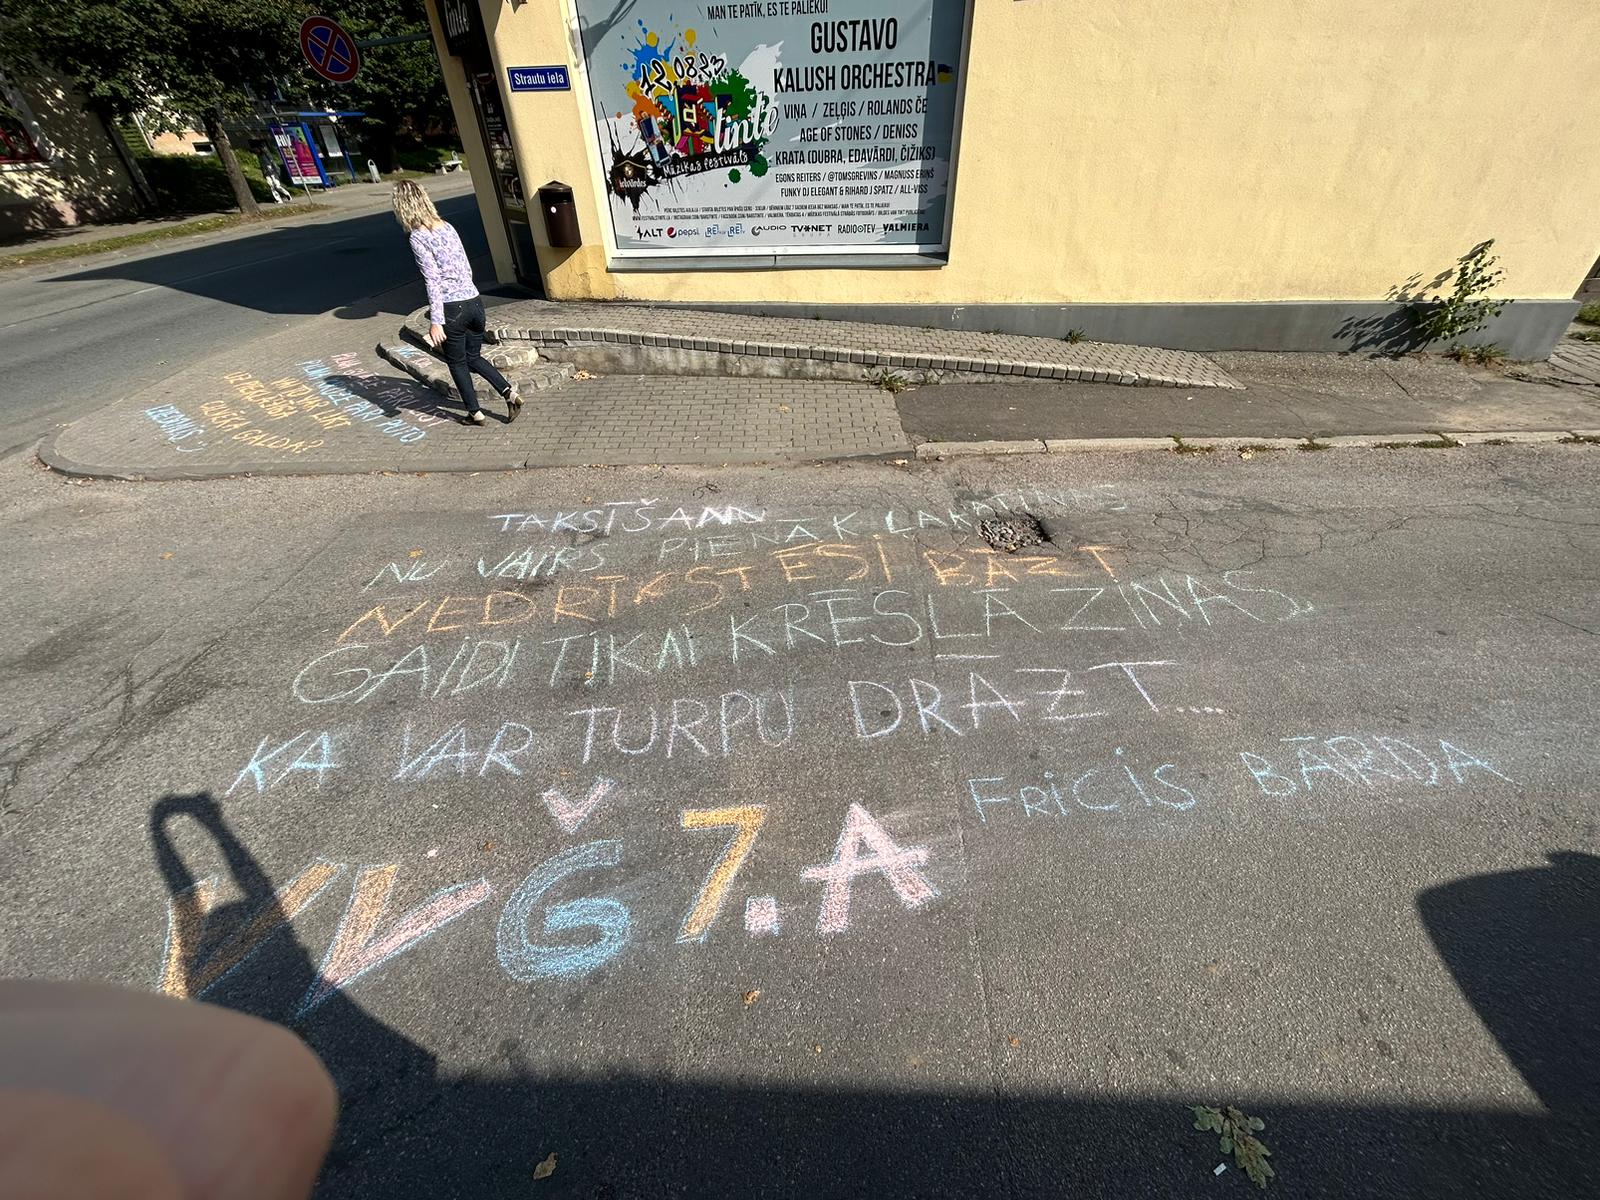 MAN TE PATĪK, ES TE PALIEKU!
GUSTAVO
KALUSH ORCHESTRA
VIŅA / ZEĻĢIS / ROLANDS ČE
AGE OF STONES / DENISS
KRATA (DUBRA, EDAVĀRDI, ČIŽIKS)
EGONS REITERS / @TOMSGREVINS / MAGNUSS ERIŅŠ
FUNKY DJ ELEGANT & RIHARD J SPATZ / ALL-VISS
12.08.23
tinte
Mūzikas festivāls
SALT pepsi RE RE AUDIO TV NET RADIO TEV VALMIERA
Strautu iela
tinte
PĀRI PUTO
UZ
GALIŅA?
TAKSTŠANN
NU VAIRS PIENĀK ĻAKATIŅAS
NEDRĪKSTĒSI BĀZT
GAIDI TIKAI KRĒSLĀ ZIŅAS,
KA VAR TURPU DRĀZT....
FRICIS BĀRDA
VVĞ 7.A